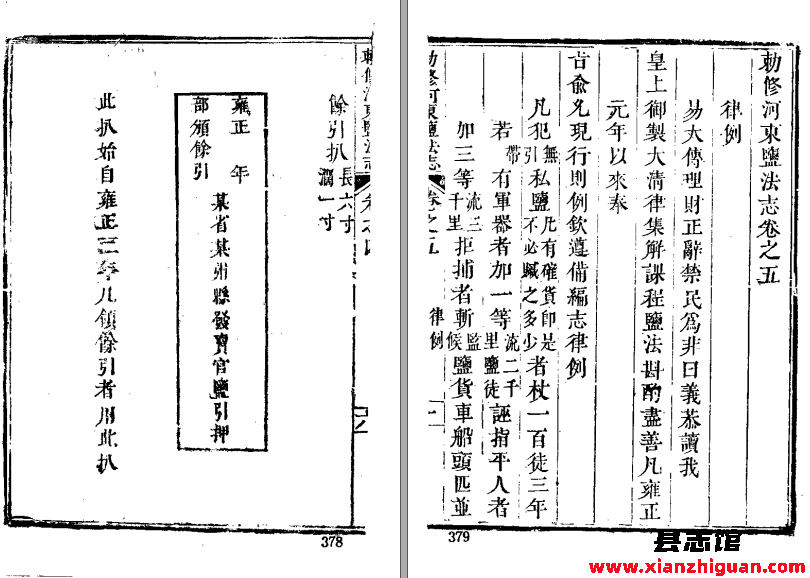 勅修河東鹽法志 卷之四
餘引扒長六寸濶一寸
雍正 年
某省某州縣發賣官鹽引押
部頒餘引
此扒始自雍正三年凡領餘引者用此扒
378
勅修河東鹽法志卷之五
律例
易大傳理財正辭禁民爲非曰義恭讀我
皇上御製大清律集解課程鹽法斟酌盡善凡雍正
元年以來奉
旨兪允現行則例欽遵備編志律例
凡犯無引私鹽凡有確貨即是不必贓之多少者杖一百徒三年
若帶有軍器者加一等流二千里鹽徒誣指平人者
加三等流三千里拒捕者斬監候鹽貨車船頭匹並
勅修河東鹽法志 卷之五 律例 一
379
县志馆
www.xianzhiguan.com